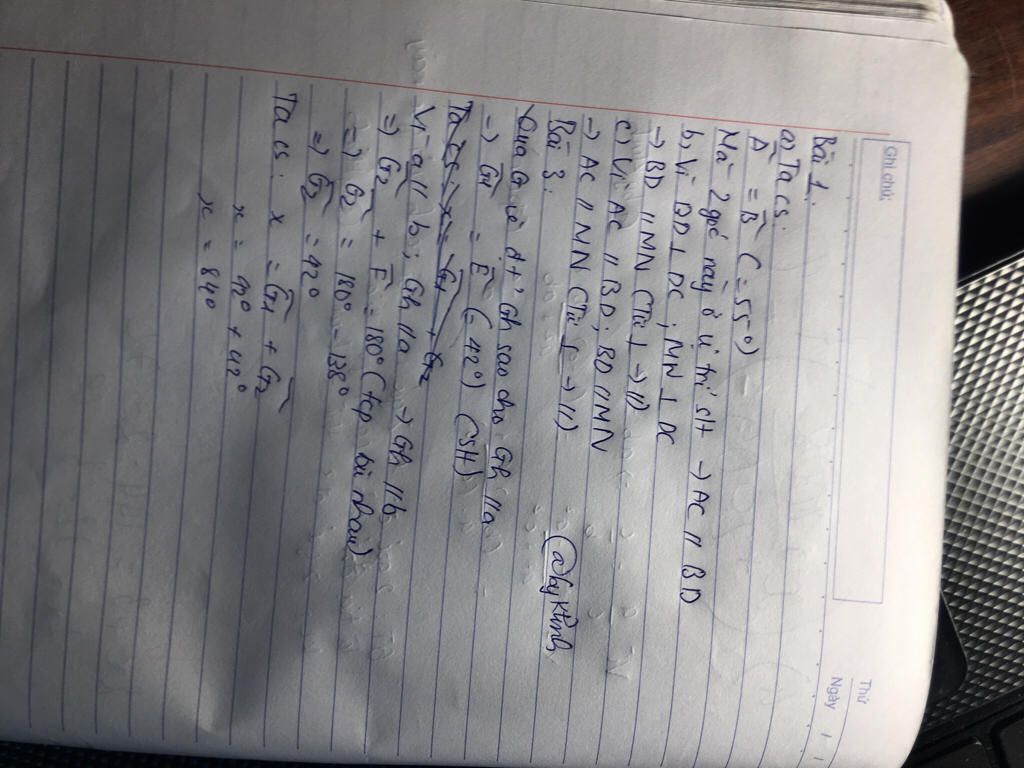 Ghi chú:
Thứ
Ngày / /
Bài 1.
a) Ta có:
Â = B̂ (= 55°)
Mà 2 góc này ở vị trí SH → AC // BD
b, Vì BD ⊥ DC ; MN ⊥ DC
→ BD // MN (Từ ⊥ → //)
c) Vì AC // BD ; BD // MN
→ AC // MN (Từ ⊥ → //)
Bài 3:
Qua G vẽ đt' Gh sao cho Gh // a
→ Ĝ1 = Ê (= 42°) (SH)
Ta có x = Ĝ1 + Ĝ2
Vì a // b ; Gh // a → Gh // b
⇒ Ĝ2 + Ê = 180° (tcp bù nhau)
⇒ Ĝ2 = 180° - 138°
⇒ Ĝ2 = 42°
Ta có: x = Ĝ1 + Ĝ2
x = 42° + 42°
x = 84°